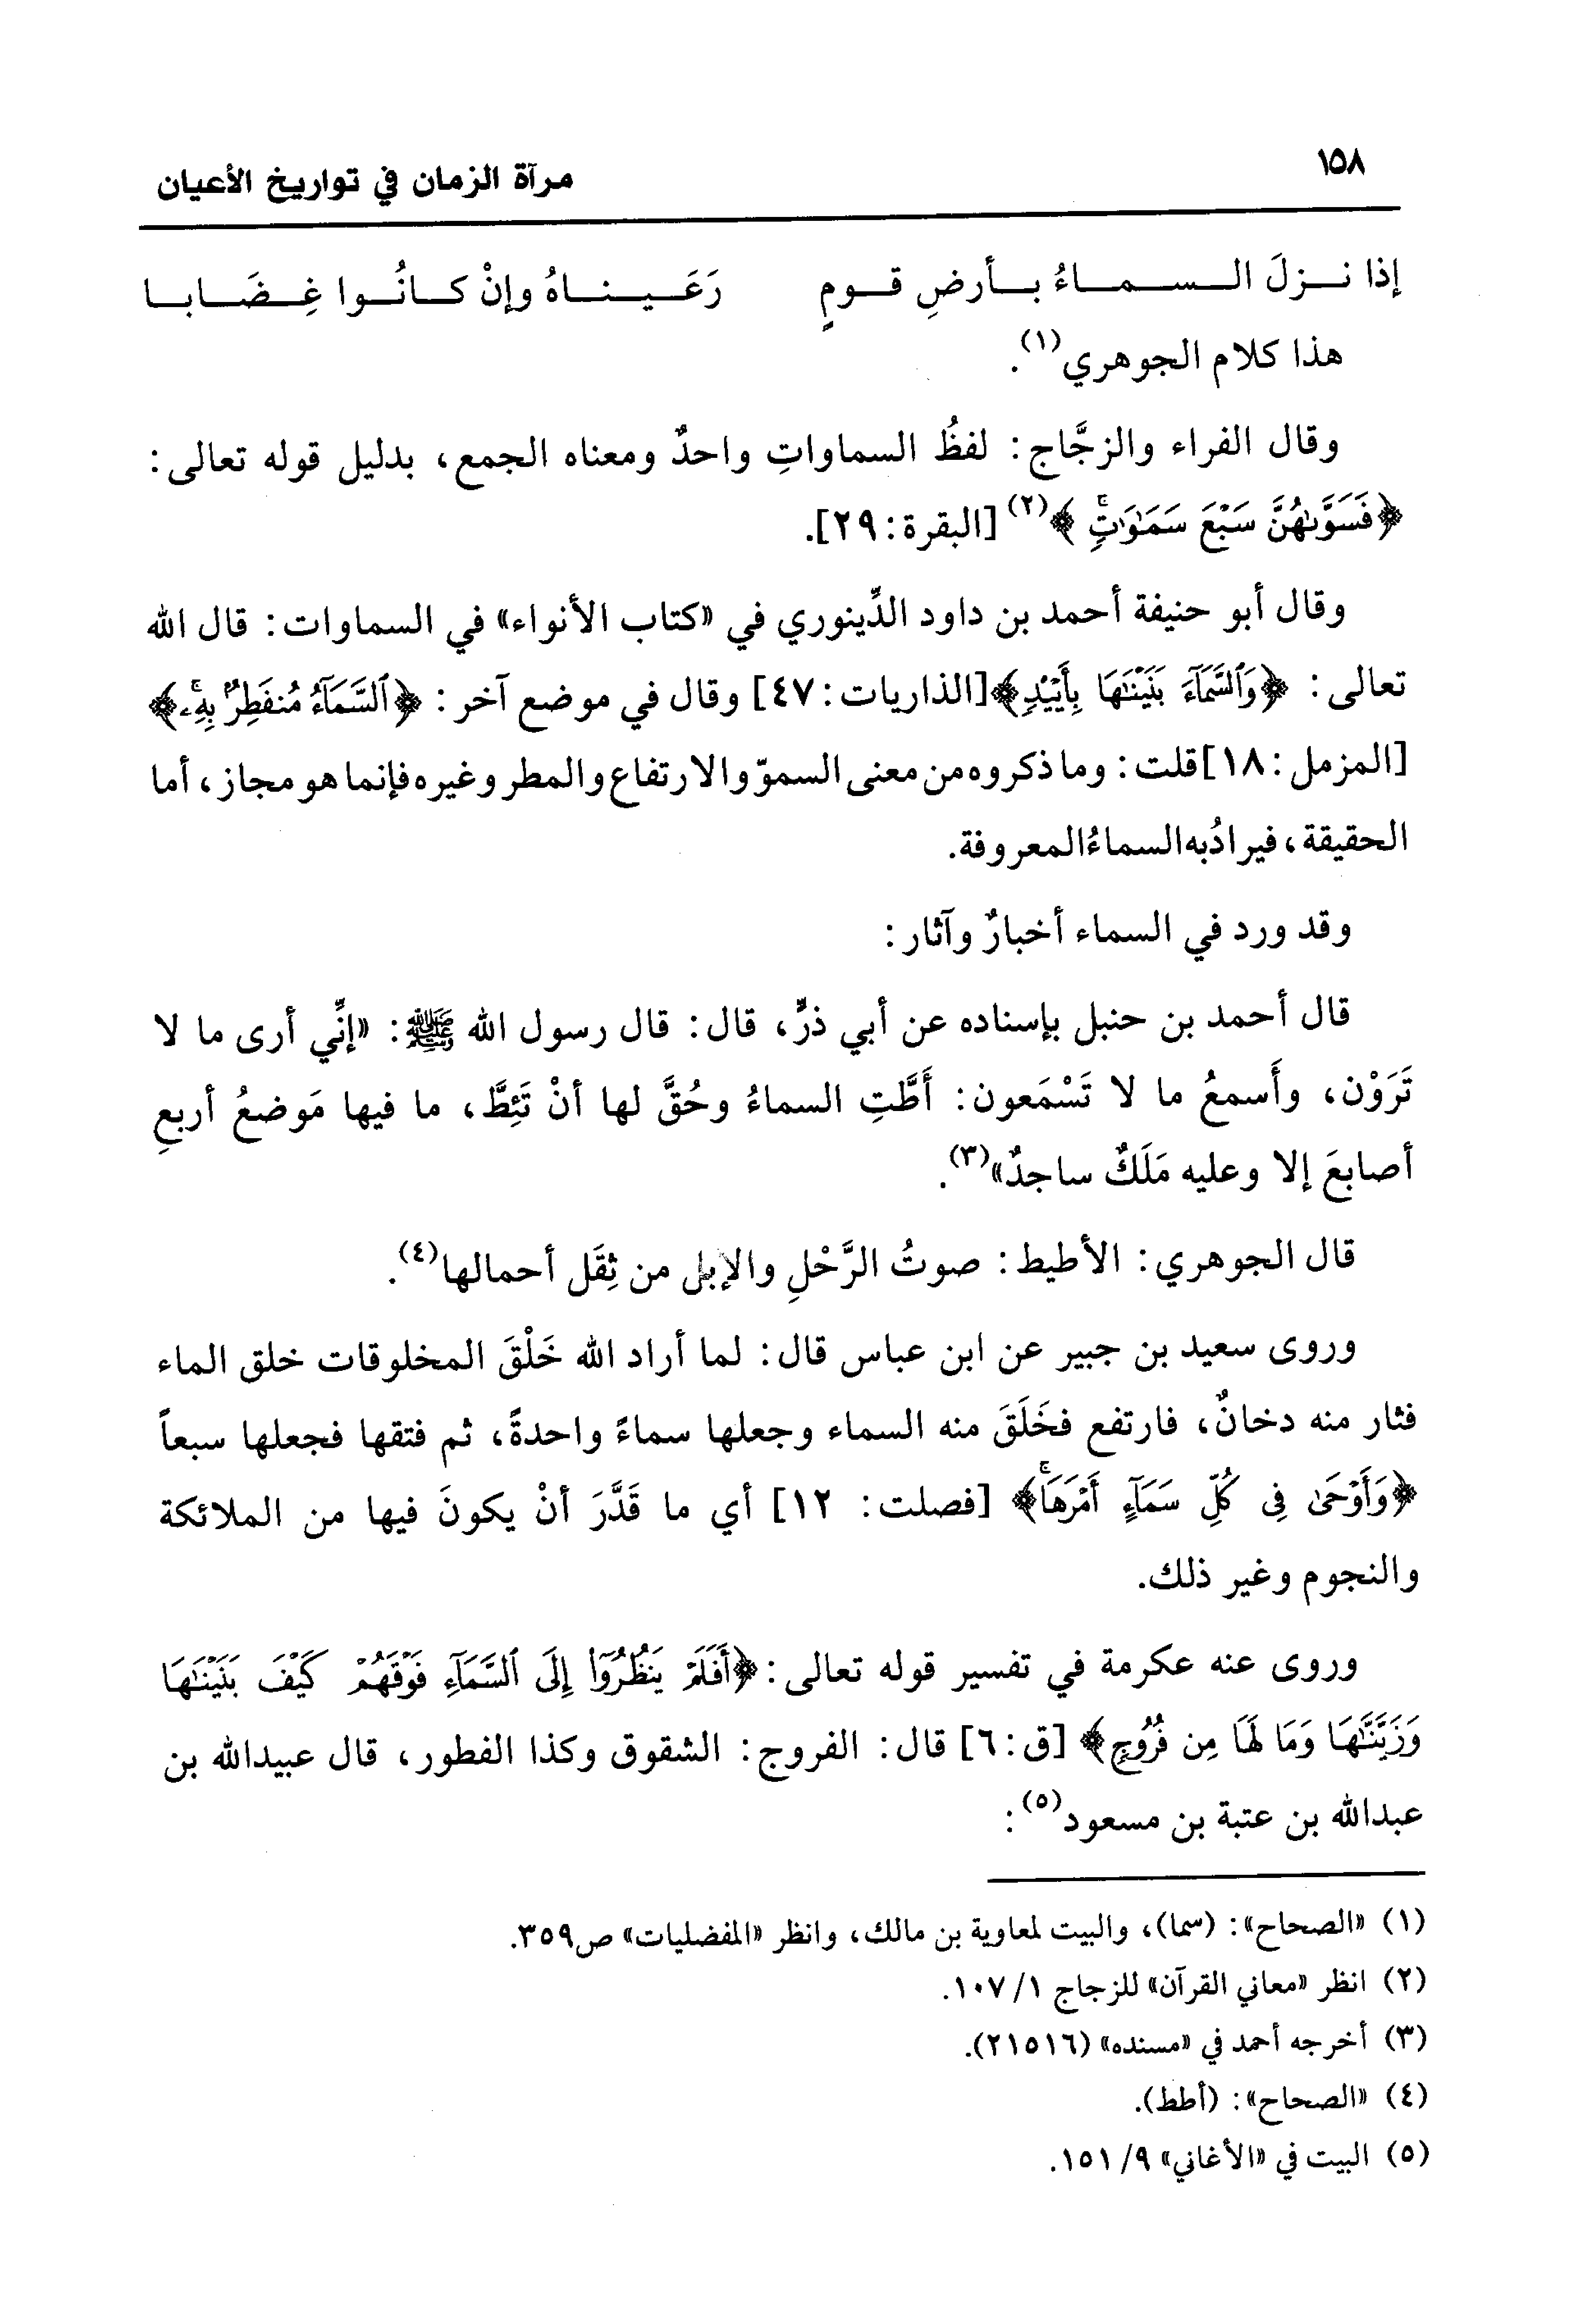 ١٥٨
مرآة الزمان في تواريخ الأعيان
إذا نزلَ السماءُ بأرضِ قومٍ رَعَيناهُ وإنْ كانُوا غِضَابا
هذا كلام الجوهري(١).
وقال الفراء والزجَّاج: لفظُ السماواتِ واحدٌ ومعناه الجمع، بدليل قوله تعالى:
﴿فَسَوَّىٰهُنَّ سَبْعَ سَمَٰوَٰتٍۚ﴾(٢) [البقرة: ٢٩].
وقال أبو حنيفة أحمد بن داود الدِّينوري في «كتاب الأنواء» في السماوات: قال الله
تعالى: ﴿وَٱلسَّمَآءَ بَنَيْنَٰهَا بِأَيْي۟دٍ﴾[الذاريات: ٤٧] وقال في موضع آخر: ﴿ٱلسَّمَآءُ مُنفَطِرٌۢ بِهِۦۚ﴾
[المزمل: ١٨] قلت: وما ذكروه من معنى السموّ والارتفاع والمطر وغيره فإنما هو مجاز، أما
الحقيقة، فيرادُ به السماءُ المعروفة.
وقد ورد في السماء أخبارٌ وآثار:
قال أحمد بن حنبل بإسناده عن أبي ذرٍّ، قال: قال رسول الله ﷺ: «إنِّي أرى ما لا
تَرَوْن، وأَسمعُ ما لا تَسْمَعون: أَطَّتِ السماءُ وحُقَّ لها أنْ تَئِطَّ، ما فيها مَوضعُ أربعِ
أصابعَ إلا وعليه مَلَكٌ ساجدٌ»(٣).
قال الجوهري: الأطيط: صوتُ الرَّحْلِ والإبل من ثِقَل أحمالها(٤).
وروى سعيد بن جبير عن ابن عباس قال: لما أراد الله خَلْقَ المخلوقات خلق الماء
فثار منه دخانٌ، فارتفع فخَلَقَ منه السماء وجعلها سماءً واحدةً، ثم فتقها فجعلها سبعاً
﴿وَأَوْحَىٰ فِى كُلِّ سَمَآءٍ أَمْرَهَاۚ﴾ [فصلت: ١٢] أي ما قَدَّرَ أنْ يكونَ فيها من الملائكة
والنجوم وغير ذلك.
وروى عنه عكرمة في تفسير قوله تعالى: ﴿أَفَلَمْ يَنظُرُوٓا۟ إِلَى ٱلسَّمَآءِ فَوْقَهُمْ كَيْفَ بَنَيْنَٰهَا
وَزَيَّنَّٰهَا وَمَا لَهَا مِن فُرُوجٍ﴾ [ق: ٦] قال: الفروج: الشقوق وكذا الفطور، قال عبيدالله بن
عبدالله بن عتبة بن مسعود(٥):
(١) «الصحاح»: (سما)، والبيت لمعاوية بن مالك، وانظر «المفضليات» ص٣٥٩.
(٢) انظر «معاني القرآن» للزجاج ١/ ١٠٧.
(٣) أخرجه أحمد في «مسنده» (٢١٥١٦).
(٤) «الصحاح»: (أطط).
(٥) البيت في «الأغاني» ٩/ ١٥١.